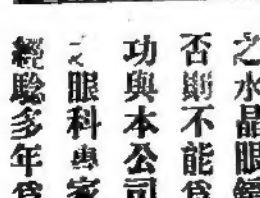 之水晶眼鏡
否斷不能爲
功與本公司
之眼科專家
經驗多年爲